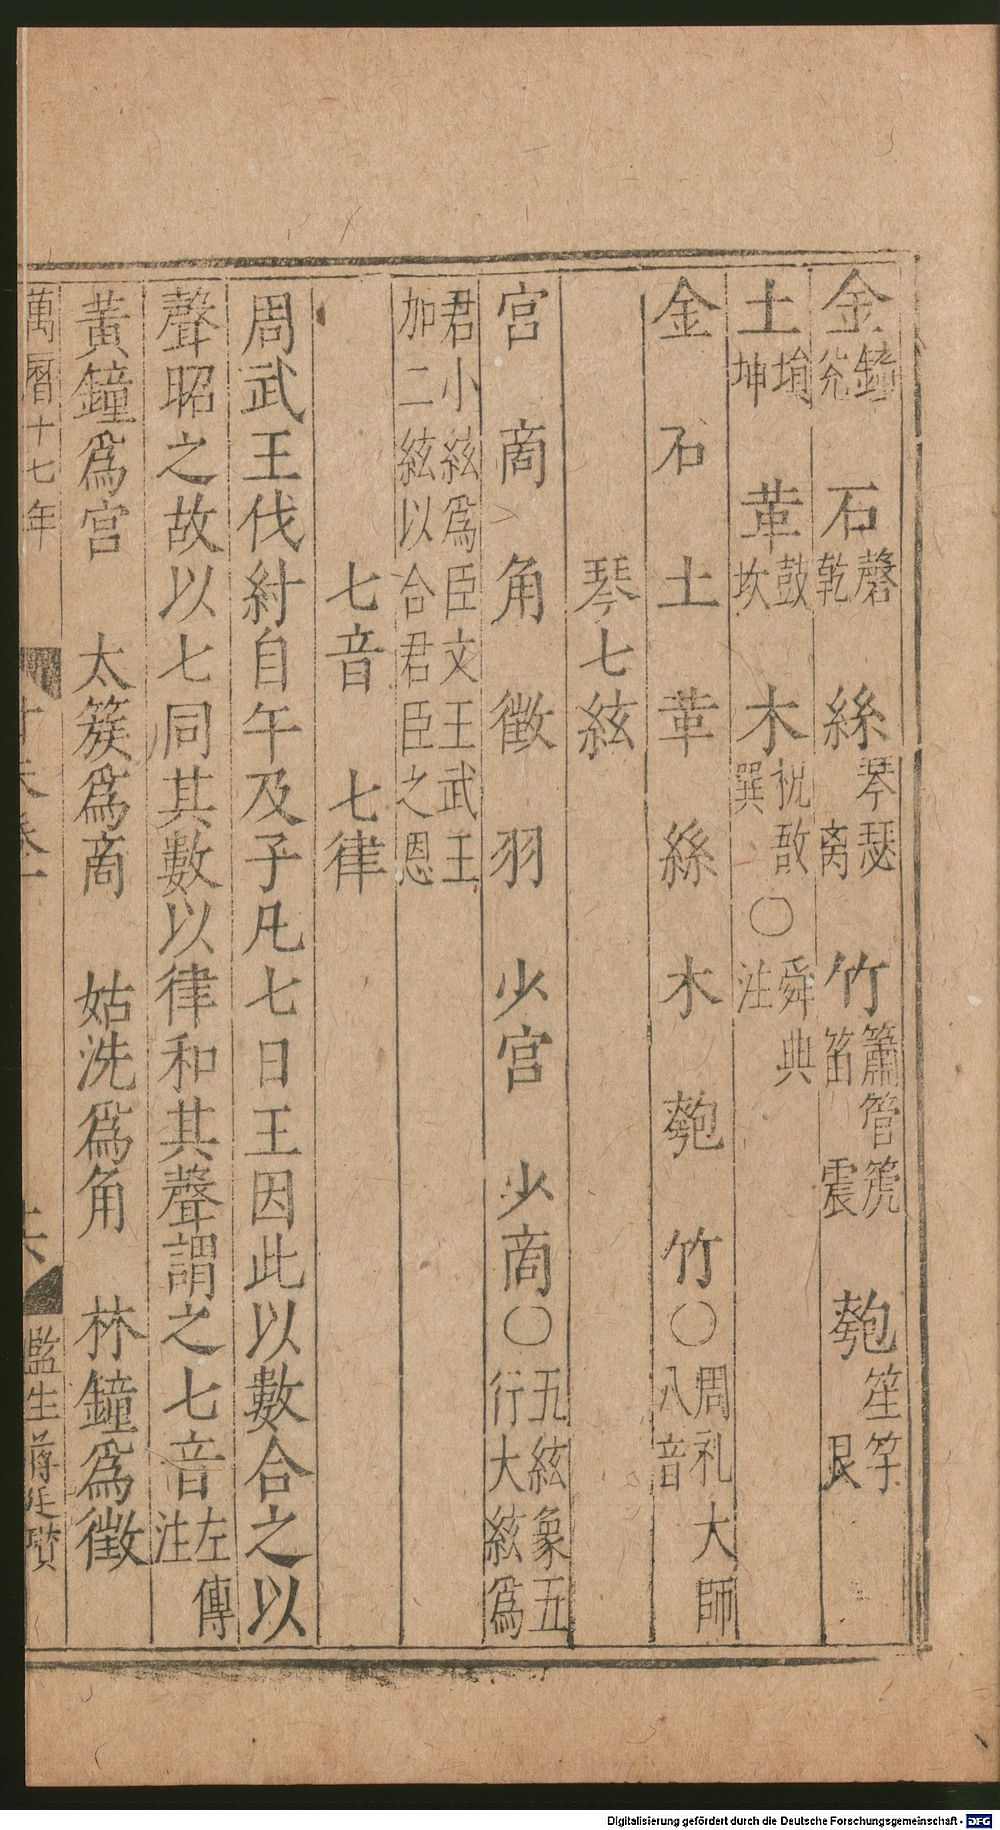 金鐘兊　石磬乾　絲琴瑟離　竹簫管篪笛震　匏笙竽艮
土塤坤　革鼓坎　木柷敔巽○舜典注
金　石　土　革　絲　木　匏　竹○周礼大師八音
琴七絃
宮　商　角　徵　羽　少宮　少商○五絃象五行大絃爲
君小絃爲臣文王武王加二絃以合君臣之恩
七音　七律
周武王伐紂自午及子凡七日王因此以數合之以
聲昭之故以七同其數以律和其聲謂之七音左傳注
黃鐘爲宮　太簇爲商　姑洗爲角　林鐘爲徵
萬曆十七年　監生蔣
Digitalisierung gefördert durch die Deutsche Forschungsgemeinschaft - DFG